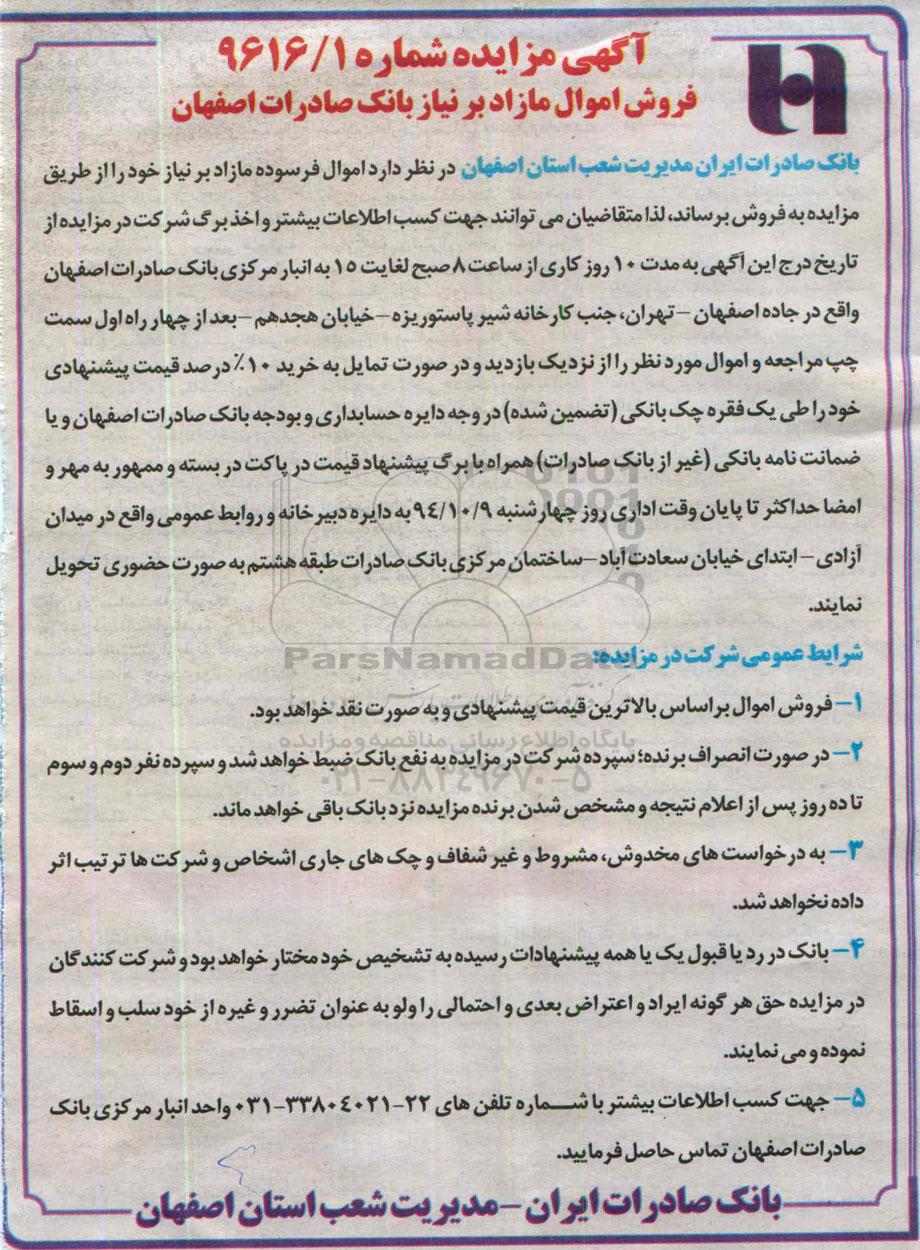 آگهی مزایده شماره ۹۶۱۶/۱
فروش اموال مازاد بر نیاز بانک صادرات اصفهان
بانک صادرات ایران مدیریت شعب استان اصفهان در نظر دارد اموال فرسوده مازاد بر نیاز خود را از طریق
مزایده به فروش برساند، لذا متقاضیان می توانند جهت کسب اطلاعات بیشتر و اخذ برگ شرکت در مزایده از
تاریخ درج این آگهی به مدت ۱۰ روز کاری از ساعت ۸ صبح لغایت ۱۵ به انبار مرکزی بانک صادرات اصفهان
واقع در جاده اصفهان – تهران، جنب کارخانه شیر پاستوریزه – خیابان هجدهم – بعد از چهار راه اول سمت
چپ مراجعه و اموال مورد نظر را از نزدیک بازدید و در صورت تمایل به خرید ۱۰٪ درصد قیمت پیشنهادی
خود را طی یک فقره چک بانکی (تضمین شده) در وجه دایره حسابداری و بودجه بانک صادرات اصفهان و یا
ضمانت نامه بانکی (غیر از بانک صادرات) همراه با برگ پیشنهاد قیمت در پاکت در بسته و ممهور به مهر و
امضا حداکثر تا پایان وقت اداری روز چهارشنبه ۹۴/۱۰/۹ به دایره دبیرخانه و روابط عمومی واقع در میدان
آزادی – ابتدای خیابان سعادت آباد – ساختمان مرکزی بانک صادرات طبقه هشتم به صورت حضوری تحویل
نمایند.
شرایط عمومی شرکت در مزایده:
ParsNamadData
۱– فروش اموال بر اساس بالاترین قیمت پیشنهادی و به صورت نقد خواهد بود.
پایگاه اطلاع رسانی مناقصه و مزایده
۲– در صورت انصراف برنده؛ سپرده شرکت در مزایده به نفع بانک ضبط خواهد شد و سپرده نفر دوم و سوم
۰۲۱–۸۸۳۴۹۶۷۰–۵
تا ده روز پس از اعلام نتیجه و مشخص شدن برنده مزایده نزد بانک باقی خواهد ماند.
۳– به درخواست های مخدوش، مشروط و غیر شفاف و چک های جاری اشخاص و شرکت ها ترتیب اثر
داده نخواهد شد.
۴– بانک در رد یا قبول یک یا همه پیشنهادات رسیده به تشخیص خود مختار خواهد بود و شرکت کنندگان
در مزایده حق هر گونه ایراد و اعتراض بعدی و احتمالی را ولو به عنوان تضرر و غیره از خود سلب و اسقاط
نموده و می نمایند.
۵– جهت کسب اطلاعات بیشتر با شماره تلفن های ۲۲-۰۳۱-۳۳۸۰۴۰۲۱ واحد انبار مرکزی بانک
صادرات اصفهان تماس حاصل فرمایید.
بانک صادرات ایران – مدیریت شعب استان اصفهان